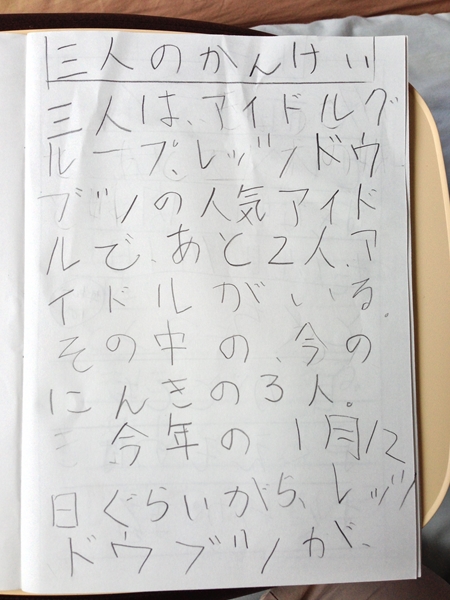 三人のかんけい
三人は、アイドルグ
ループ、レッツノドウ
ブツノの人気アイド
ルで、あと2人、ア
イドルがいる。
その中の、今の
にんきの3人。
今年の1月12
日ぐらいがら、レッツ
ドウブツノが、